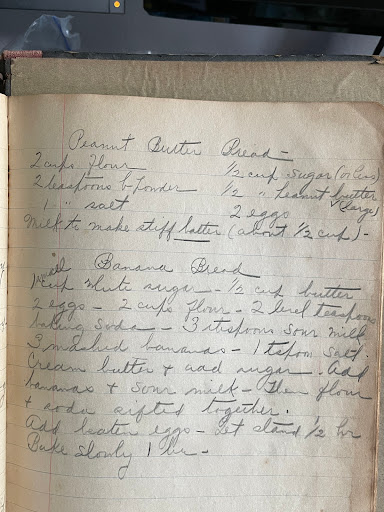 Peanut Butter Bread -
2 cups flour 1/2 cup sugar (or less)
2 teaspoons b powder 1/2 " Peanut butter (large)
1 " salt 2 eggs
Milk to make stiff batter (about 1/2 cup) -
Banana Bread
1 cup white sugar - 1/2 cup butter
2 eggs - 2 cups flour - 2 level teaspoon
baking soda - 3 tspoons sour milk
3 mashed bananas - 1 tspoon salt.
Cream butter & add sugar. Add
bananas & sour milk - then flour
& soda sifted together.
Add beaten eggs - Let stand 1/2 hr
Bake slowly 1 hr -